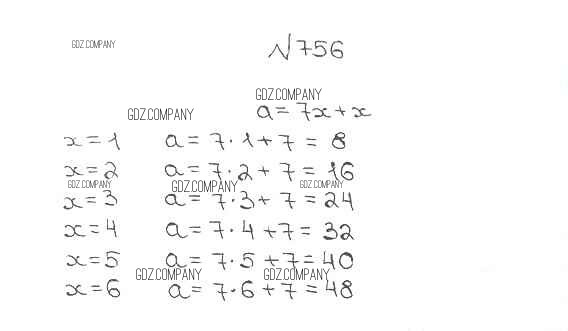 GDZ.COMPANY
№756
GDZ.COMPANY
GDZ.COMPANY
a = 7x + x
x = 1 a = 7 · 1 + 7 = 8
x = 2 a = 7 · 2 + 7 = 16
GDZ.COMPANY GDZ.COMPANY GDZ.COMPANY
x = 3 a = 7 · 3 + 7 = 24
x = 4 a = 7 · 4 + 7 = 32
x = 5 a = 7 · 5 + 7 = 40
GDZ.COMPANY GDZ.COMPANY
x = 6 a = 7 · 6 + 7 = 48